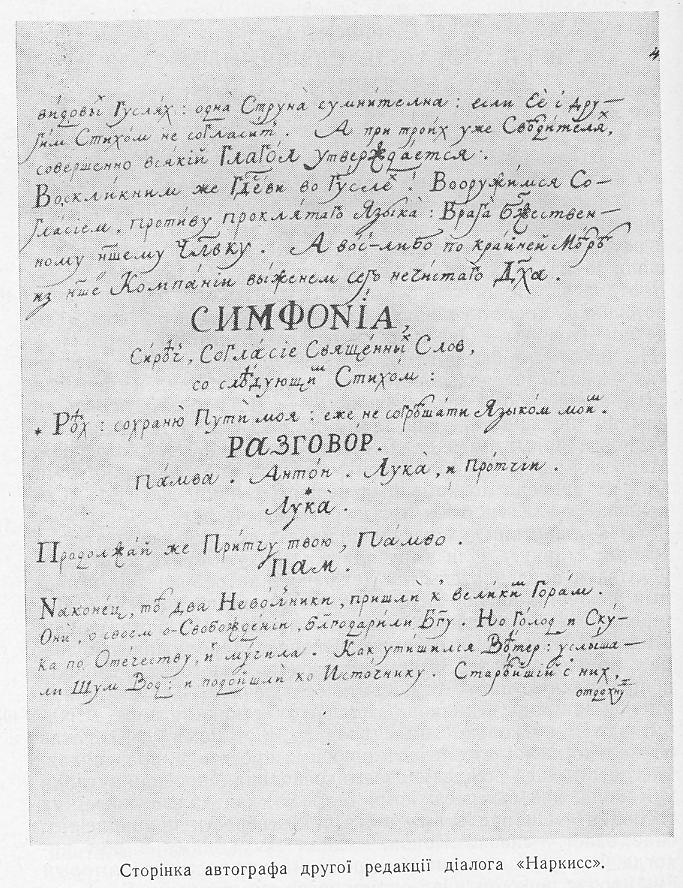 4
видовы̆ Гуслях: одна̀ Струна̀ сумнителна: если Еѐ і дру—
ги́м Стихо́м не согласит̾. А при трои́х уже Свѣдителях,
совершенно вся́кій Глаго́л утвержда́ется.
Воскли́кним же Гдеви во Гу́слех! Вооружи́мся Со—
гла́сіем, проти́ву прокля́таго Языка̀: Врага̀ Бжествен—
ному ншему Члвку. А вос̾-либо по кра́йней Мѣрѣ
из нше Компа́ніи вы́женем сего нечи́стаго Дха.
СИМФОНІ́А,
Си́рѣч̾, Согла́сіе Свяще́нных Слов,
со слѣдующим Стихо́м:
* Рѣх: сохраню̀ Пути̂ моя: еже не согрѣша́ти Языко́м мои̂м.
РАЗГОВО́Р.
Па́мва. Анто́н. Лука̀, и Про́тчіи.
Лука̀.
Продолжа́й же При́тчу твою, Па́мво.
Пам.
Наконе́ц, тѣ два Нево́лники, пришлѝ к вели́ким Гора́м.
Онѝ, о своем о-Свобожде́ніи, благодари́ли Бгу. Но Го́лод и Ску́—
ка по Оте́честву, и̂х му́чила. Как ути́шился Вѣтер: услы́ша—
ли Шум Вод: и подойшлѝ ко Исто́чнику. Старѣ́йшій с них,
отдохну́в
Сторінка автографа другої редакції діалога «Наркисс».